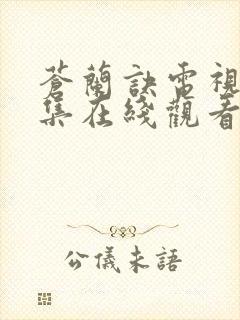 蒼蘭訣電視
集在綫觀看
公儀未語